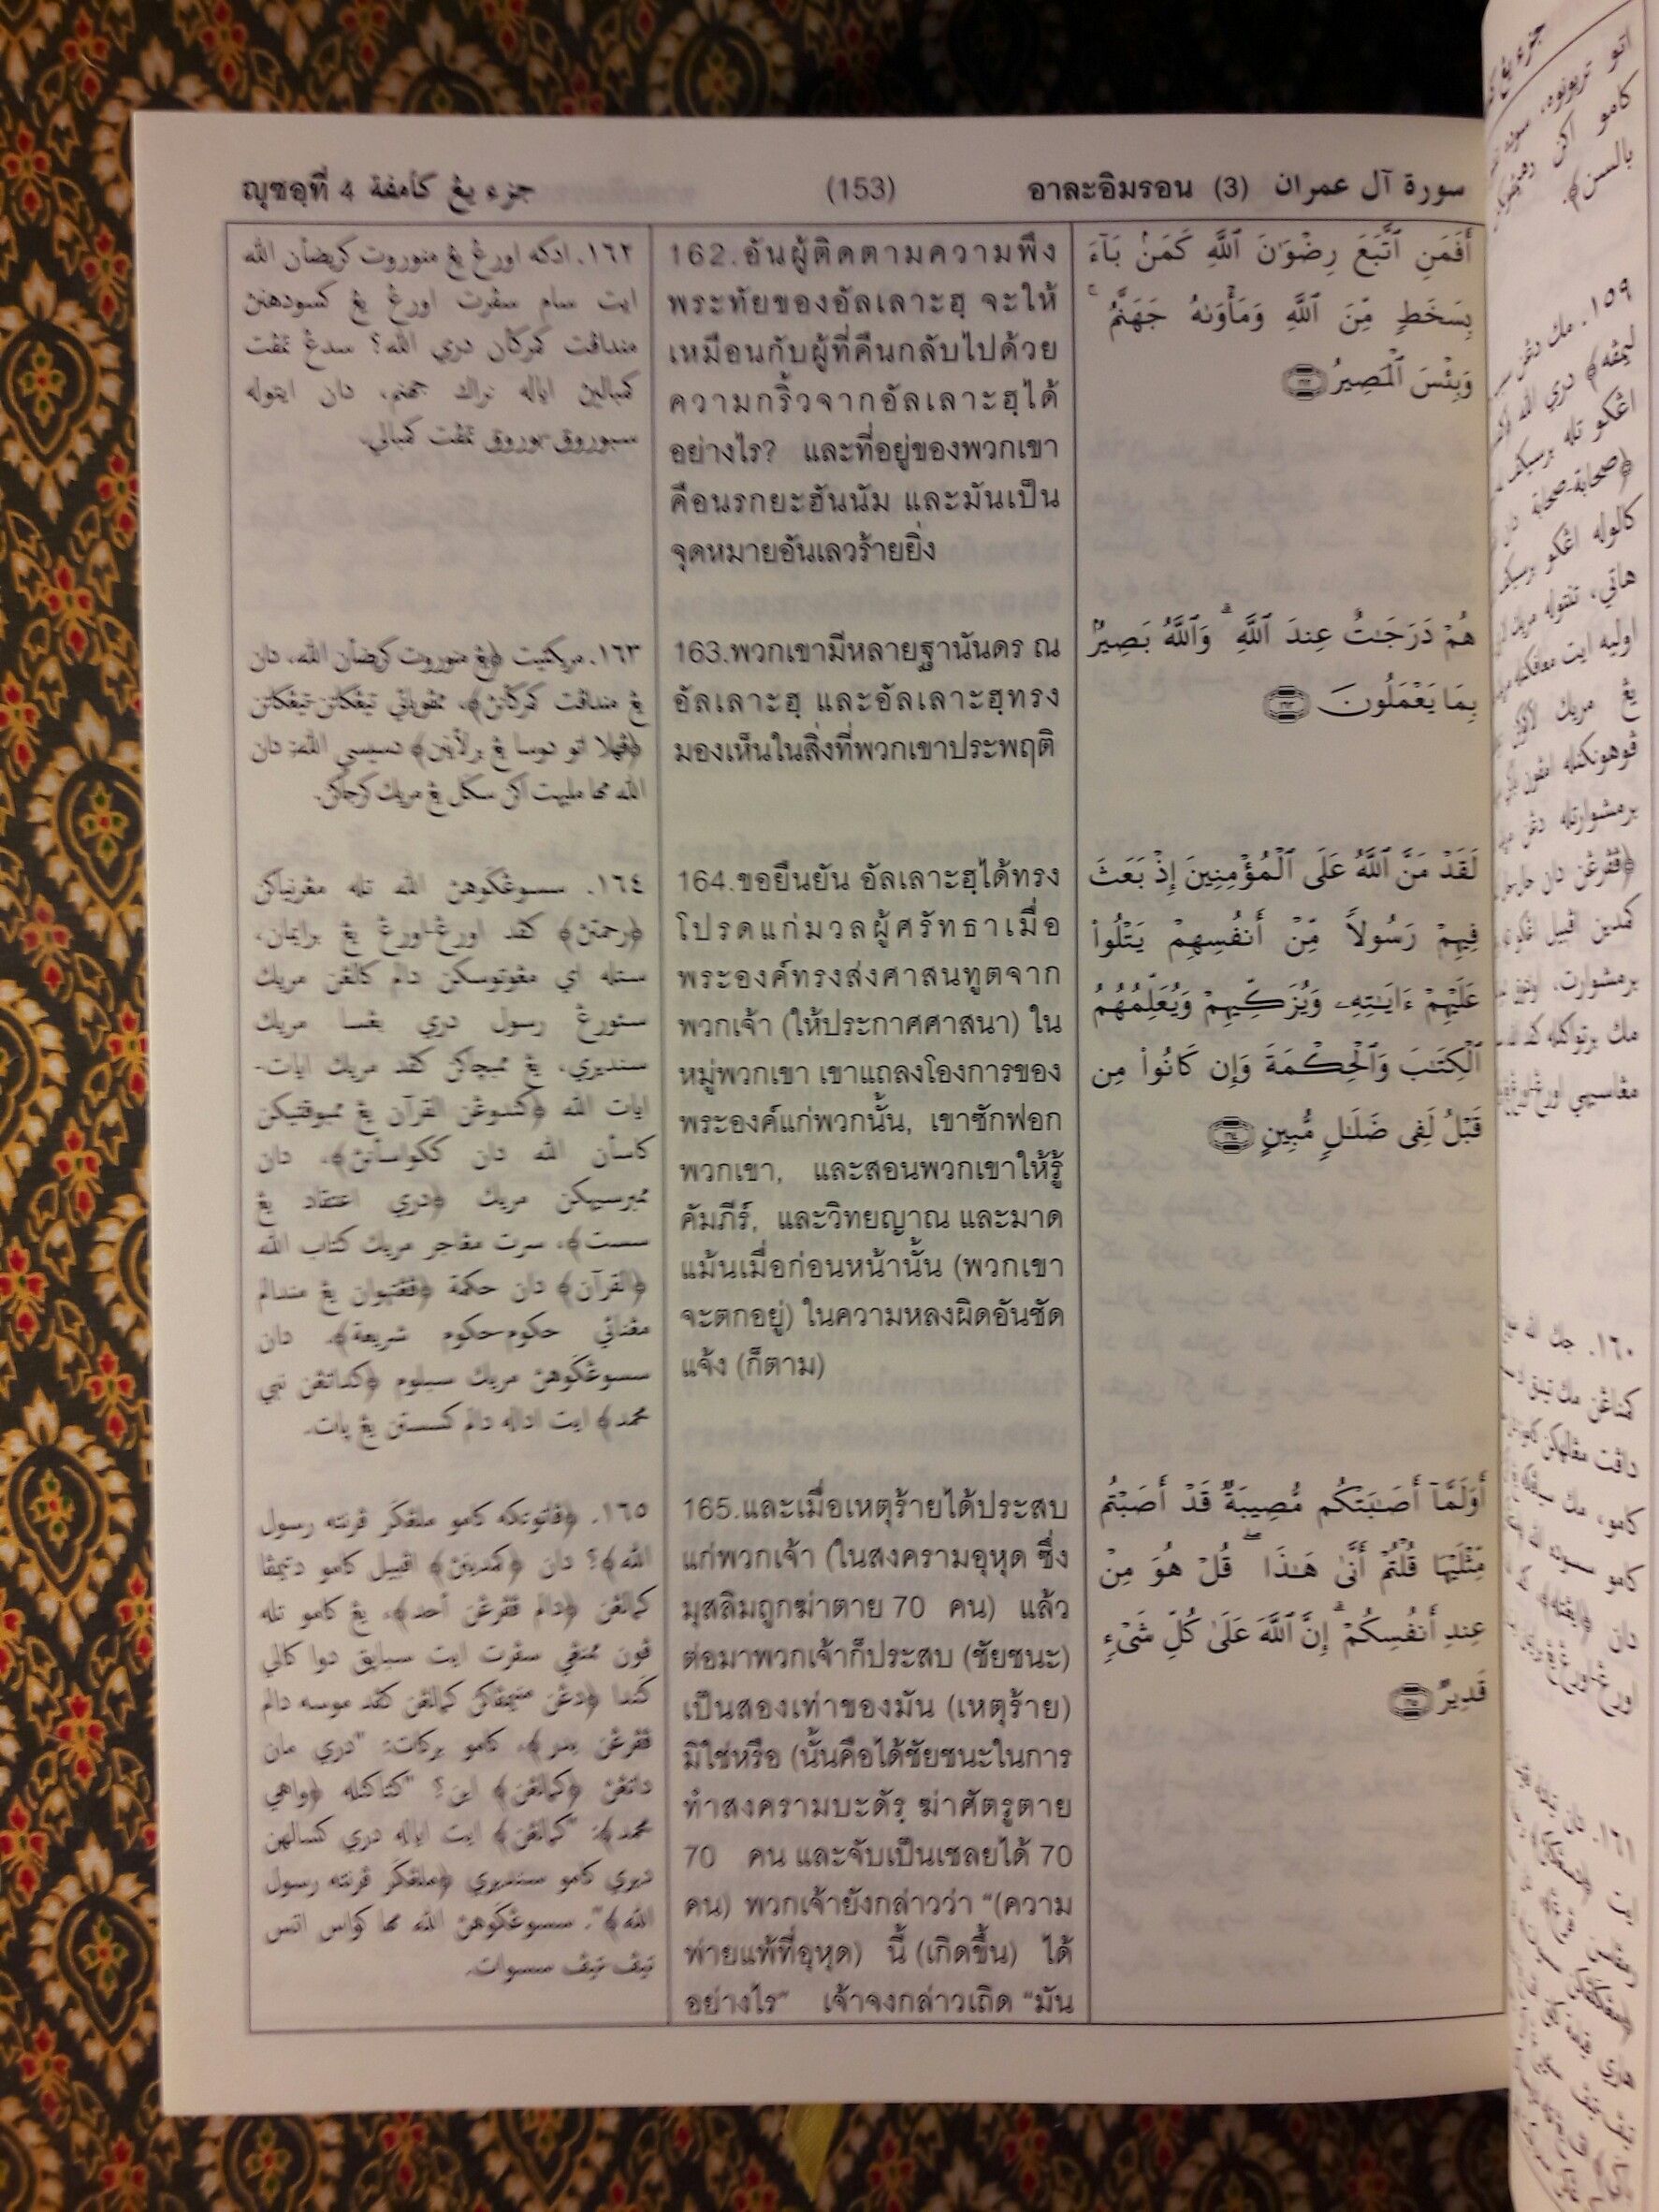 ญุซอฺที่ 4 جزء يڠ كأمفة
(153)
อาละอิมรอน (3) سورة آل عمران
أَفَمَنِ ٱتَّبَعَ رِضْوَٰنَ ٱللَّهِ كَمَنۢ بَآءَ
بِسَخَطٍ مِّنَ ٱللَّهِ وَمَأْوَىٰهُ جَهَنَّمُ ۚ
وَبِئْسَ ٱلْمَصِيرُ ١٦٢
هُمْ دَرَجَٰتٌ عِندَ ٱللَّهِ ۗ وَٱللَّهُ بَصِيرٌۢ
بِمَا يَعْمَلُونَ ١٦٣
لَقَدْ مَنَّ ٱللَّهُ عَلَى ٱلْمُؤْمِنِينَ إِذْ بَعَثَ
فِيهِمْ رَسُولًا مِّنْ أَنفُسِهِمْ يَتْلُوا۟
عَلَيْهِمْ ءَايَٰتِهِۦ وَيُزَكِّيهِمْ وَيُعَلِّمُهُمُ
ٱلْكِتَٰبَ وَٱلْحِكْمَةَ وَإِن كَانُوا۟ مِن
قَبْلُ لَفِى ضَلَٰلٍ مُّبِينٍ ١٦٤
أَوَلَمَّآ أَصَٰبَتْكُم مُّصِيبَةٌ قَدْ أَصَبْتُم
مِّثْلَيْهَا قُلْتُمْ أَنَّىٰ هَٰذَا ۖ قُلْ هُوَ مِنْ
عِندِ أَنفُسِكُمْ ۗ إِنَّ ٱللَّهَ عَلَىٰ كُلِّ شَىْءٍ
قَدِيرٌ ١٦٥
162.อันผู้ติดตามความพึง
พระทัยของอัลเลาะฮฺ จะให้
เหมือนกับผู้ที่คืนกลับไปด้วย
ความกริ้วจากอัลเลาะฮฺได้
อย่างไร? และที่อยู่ของพวกเขา
คือนรกยะฮันนัม และมันเป็น
จุดหมายอันเลวร้ายยิ่ง
163.พวกเขามีหลายฐานันดร ณ
อัลเลาะฮฺ และอัลเลาะฮฺทรง
มองเห็นในสิ่งที่พวกเขาประพฤติ
164.ขอยืนยัน อัลเลาะฮฺได้ทรง
โปรดแก่มวลผู้ศรัทธาเมื่อ
พระองค์ทรงส่งศาสนทูตจาก
พวกเจ้า (ให้ประกาศศาสนา) ใน
หมู่พวกเขา เขาแถลงโองการของ
พระองค์แก่พวกนั้น, เขาซักฟอก
พวกเขา, และสอนพวกเขาให้รู้
คัมภีร์, และวิทยญาณ และมาด
แม้นเมื่อก่อนหน้านั้น (พวกเขา
จะตกอยู่) ในความหลงผิดอันชัด
แจ้ง (ก็ตาม)
165.และเมื่อเหตุร้ายได้ประสบ
แก่พวกเจ้า (ในสงครามอุหุด ซึ่ง
มุสลิมถูกฆ่าตาย 70 คน) แล้ว
ต่อมาพวกเจ้าก็ประสบ (ชัยชนะ)
เป็นสองเท่าของมัน (เหตุร้าย)
มิใช่หรือ (นั้นคือได้ชัยชนะในการ
ทำสงครามบะดัรฺ ฆ่าศัตรูตาย
70 คน และจับเป็นเชลยได้ 70
คน) พวกเจ้ายังกล่าวว่า “(ความ
พ่ายแพ้ที่อุหุด) นี้ (เกิดขึ้น) ได้
อย่างไร” เจ้าจงกล่าวเถิด “มัน
١٦٢. ادكه اورڠ يڠ منوروت كريضأن الله
ايت سام سڤرت اورڠ يڠ كسودهنن
منداڤت كمركأن دري الله؟ سدڠ تمڤت
كمبالين اياله نراك جهنم، دان ايتوله
سبوروق-بوروق تمڤت كمبالي.
١٦٣. مريكئيت ﴿يڠ منوروت كريضأن الله، دان
يڠ منداڤت كمركأنن﴾، ممڤوياٴي تيڠكاتن-تيڠكاتن
﴿ڤهلا اتو دوسا يڠ برلاٴينن﴾ دسيسي الله; دان
الله مها مليهت اكن سكل يڠ مريك كرجاكن.
١٦٤. سسوڠݢوهن الله تله مڠرنياكن
﴿رحمتن﴾ كڤد اورڠ-اورڠ يڠ برايمان،
ستله اي مڠوتوسكن دالم كالڠن مريك
سئورڠ رسول دري بڠسا مريك
سنديري، يڠ ممباچاكن كڤد مريك ايات-
ايات الله ﴿كندوڠن القرآن يڠ ممبوقتيكن
كاسأن الله دان ككواسأنن﴾، دان
ممبرسيهكن مريك ﴿دري اعتقاد يڠ
سست﴾، سرت مڠاجر مريك كتاب الله
﴿القرآن﴾ دان حكمة ﴿ڤڠتهوان يڠ مندالم
مڠناٴي حكوم-حكوم شريعة﴾. دان
سسوڠݢوهن مريك سبلوم ﴿كداتڠن نبي
محمد﴾ ايت اداله دالم كسستن يڠ ڽات.
١٦٥. ﴿ڤاتوتكه كامو ملڠݢر ڤرنته رسول
الله﴾؟ دان ﴿كمدينن﴾ اڤبيل كامو دتيمڤا
كمالڠن ﴿دالم ڤڤرڠن أحد﴾، يڠ كامو تله
ڤون ممنڠي سڤرت ايت سباڽق دوا كالي
ݢندا ﴿دڠن منيمڤاكن كمالڠن كڤد موسه دالم
ڤڤرڠن بدر﴾، كامو بركات: "دري مان
داتڠن ﴿كمالڠن﴾ اين؟ "كتاكنله ﴿واهي
محمد﴾: "كمالڠن﴾ ايت اياله دري كسالهن
ديري كامو سنديري ﴿ملڠݢر ڤرنته رسول
الله﴾". سسوڠݢوهن الله مها كواس اتس
تيڤ-تيڤ سسوات.